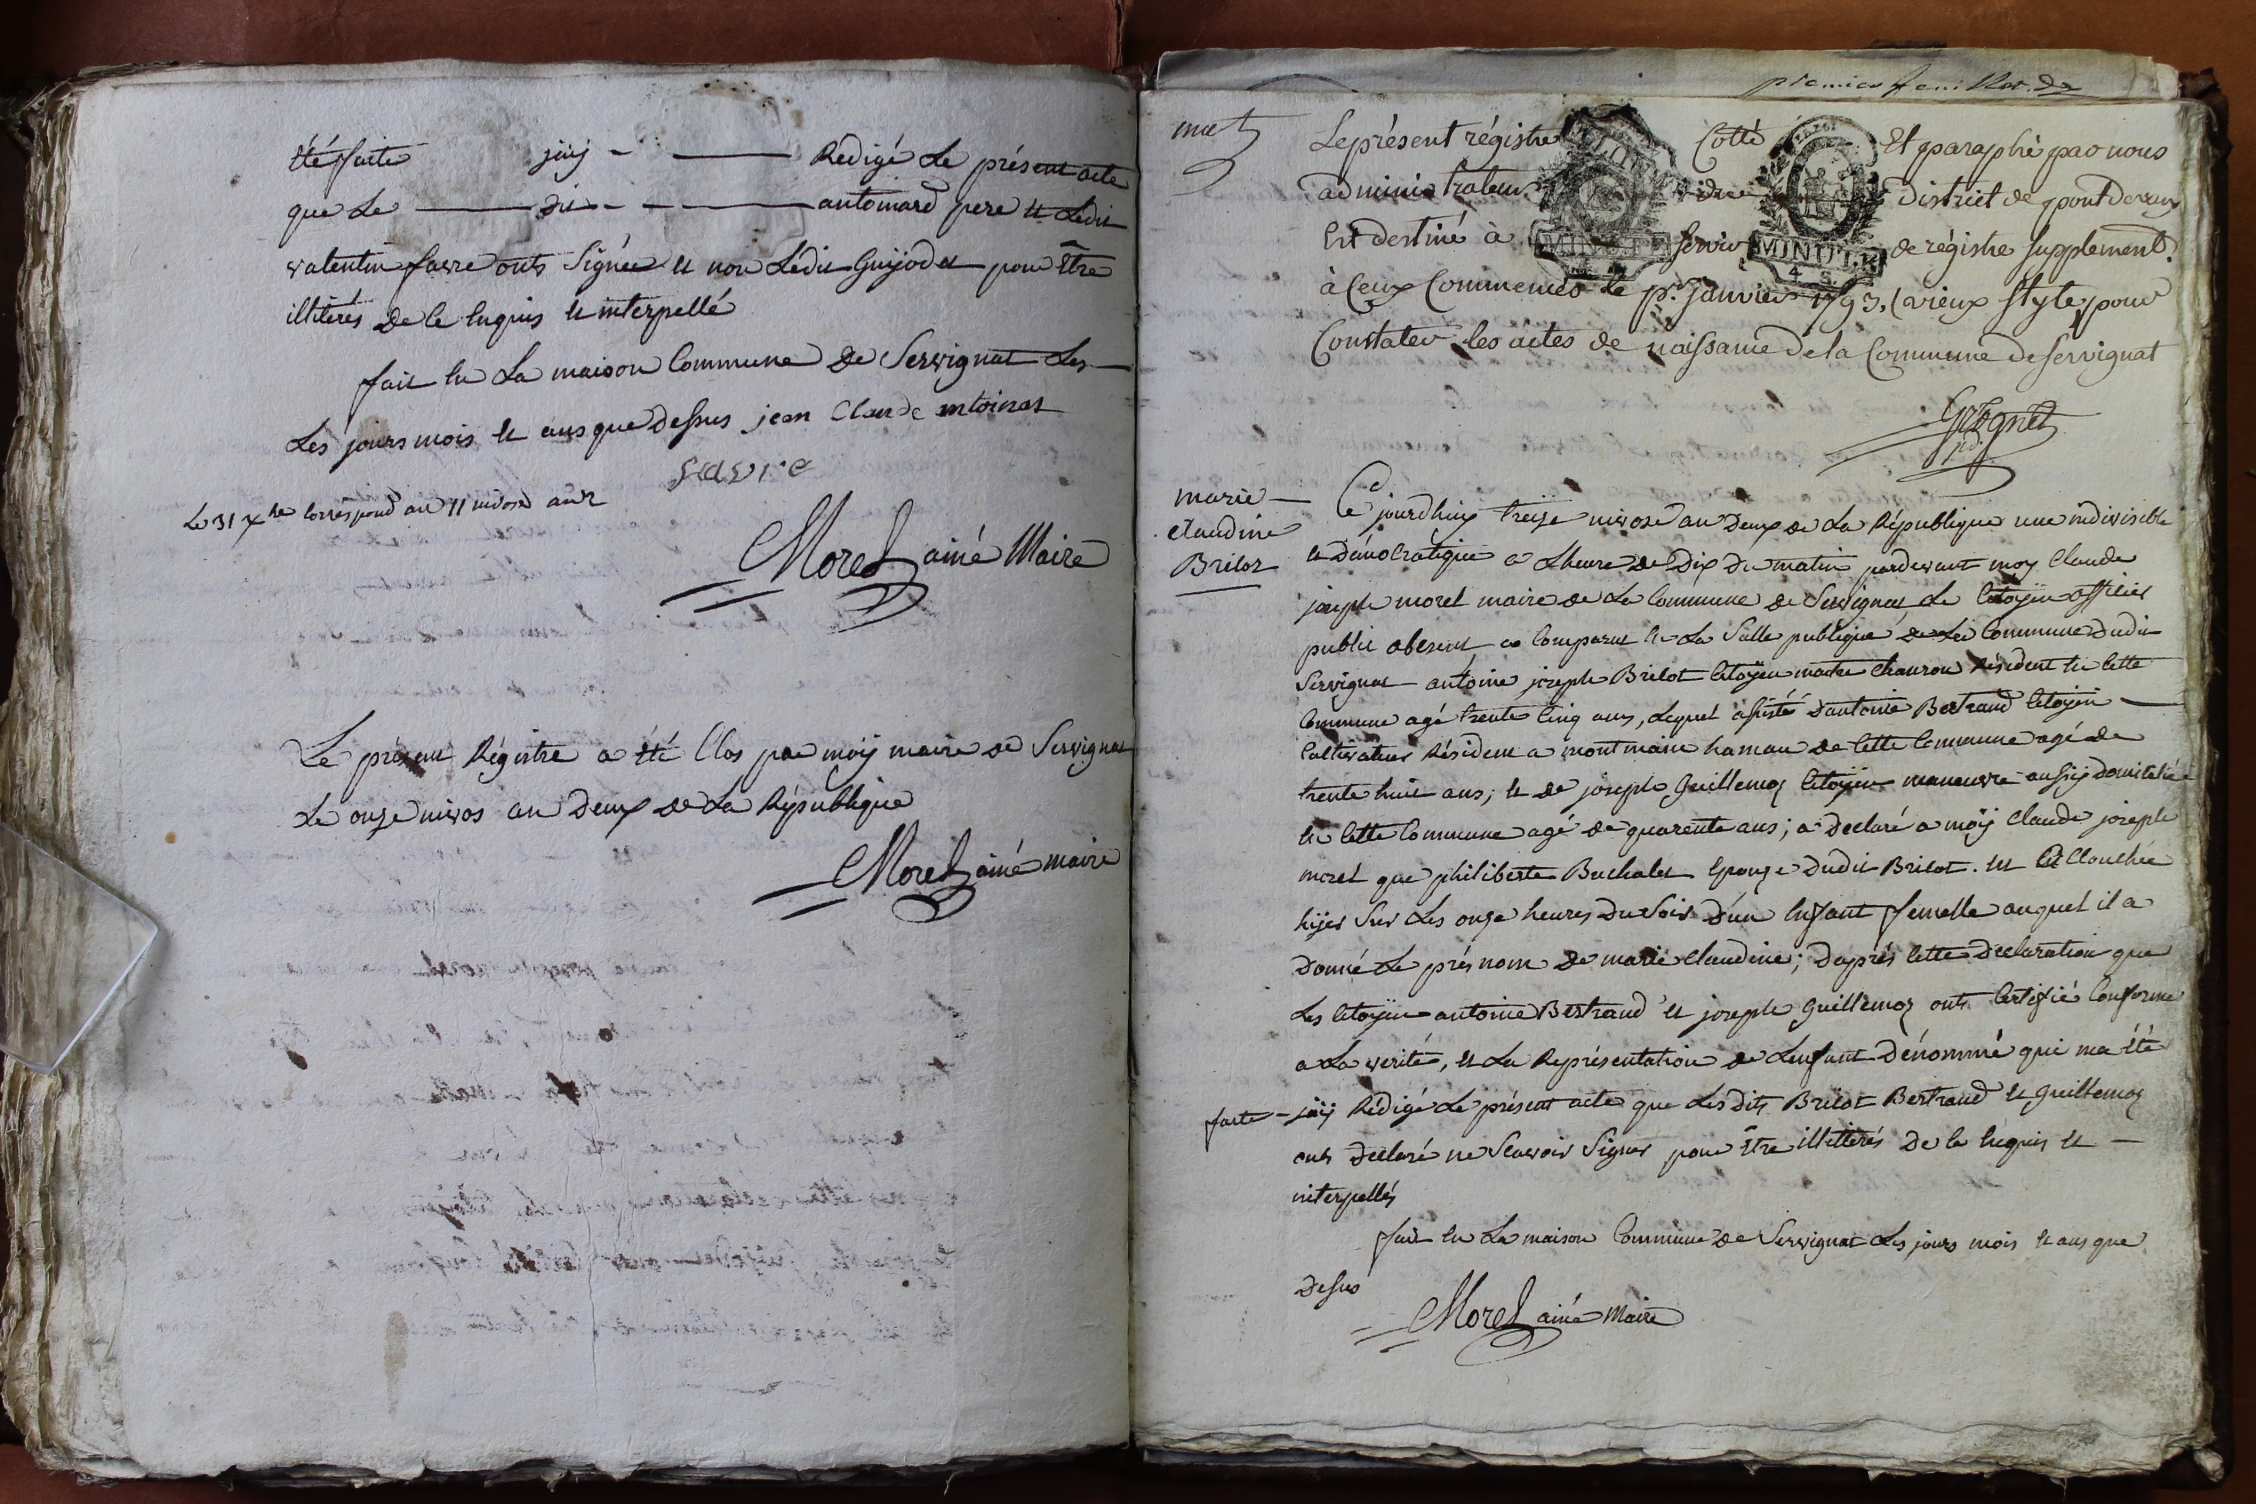 été faitte jäij Redigé Le présent acte
que Le dit antoinard pere et Ledit
valentin favre onts Signée et non Lédit Guijodet pour être
illitérés De ce Enquis et interpellé
fait En La maison Commune De Servignat Les
Les jours mois et ans que dessus jean Claude antoinat
favre
Le 31 Xbre correspond au 11 nivose an 2
Morel ainé Maire
Le présent Régistre a été Clos par moÿ maire de Servignat
Le onze nivos an Deux de La République
Morel ainé maire
premier feuillet
Le présent régistre Cotté Et paraphé par nous
administrateur du District de pontdevaux
Est destiné à servir de régistre supplement.
MINUTE MINUTE
à Ceux Commencés le pr. Janvier 1793, (vieux style) pour
Constater les actes de naissance de la Commune de Servignat
marie
claudine
Brilot
Ce jourdhuy treize nivose an Deux de La République une indivisible
et Démocratique a Lheure de Dix Du matin pardevant moy Claude
joseph morel maire de La Commune de Servignat Le Citoÿen officier
public absent a Comparut En La Salle publique de La Commune Dudit
Servignat antoine joseph Brilot Citoÿen maitre Charron Résident En Cette
Commune agé trente Cinq ans, Lequel assisté Dantoine Bertrand Citoÿen
Cultivateur Résident a montmain hamau de Cette Commune agé de
trente huit ans; et de joseph Guillemoz Citoÿen maneuvre aussij Domicilié
En Cette Commune agé de quarente ans; a Declaré a moÿ Claude joseph
morel que philiberte Buchalet Epouze Dudit Brilot. Est accouchée
hijer Sur Les onze heures Du Soir D'un Enfant femelle auquel il a
Donné Le prés nom de marie Claudine; Daprés Cette Declaration que
Les Citoÿen antoine Bertrand et joseph Guillemoz onts Certifié Conforme
a La verité, et La Représentation de Lenfant Dénommé qui ma été
faitte jäij Rédigé Le présent acte que Lés dits Brilot Bertrand et Guillemoz
onts Declaré ne Scavoir Signer pour être illitterés De ce Enquis et
interpellés
fait En La maison Commune de Servignat Les jours mois et ans que
Dessus
Morel ainé Maire